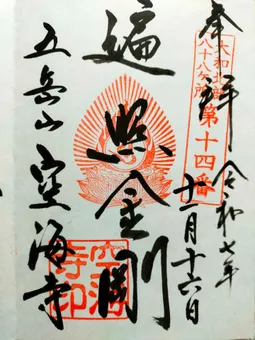 奉拝 令和七年
十一月十六日
大和北部
八十八ヶ所
第十四番
遍照金剛
五岳山 空海寺
空海
寺印